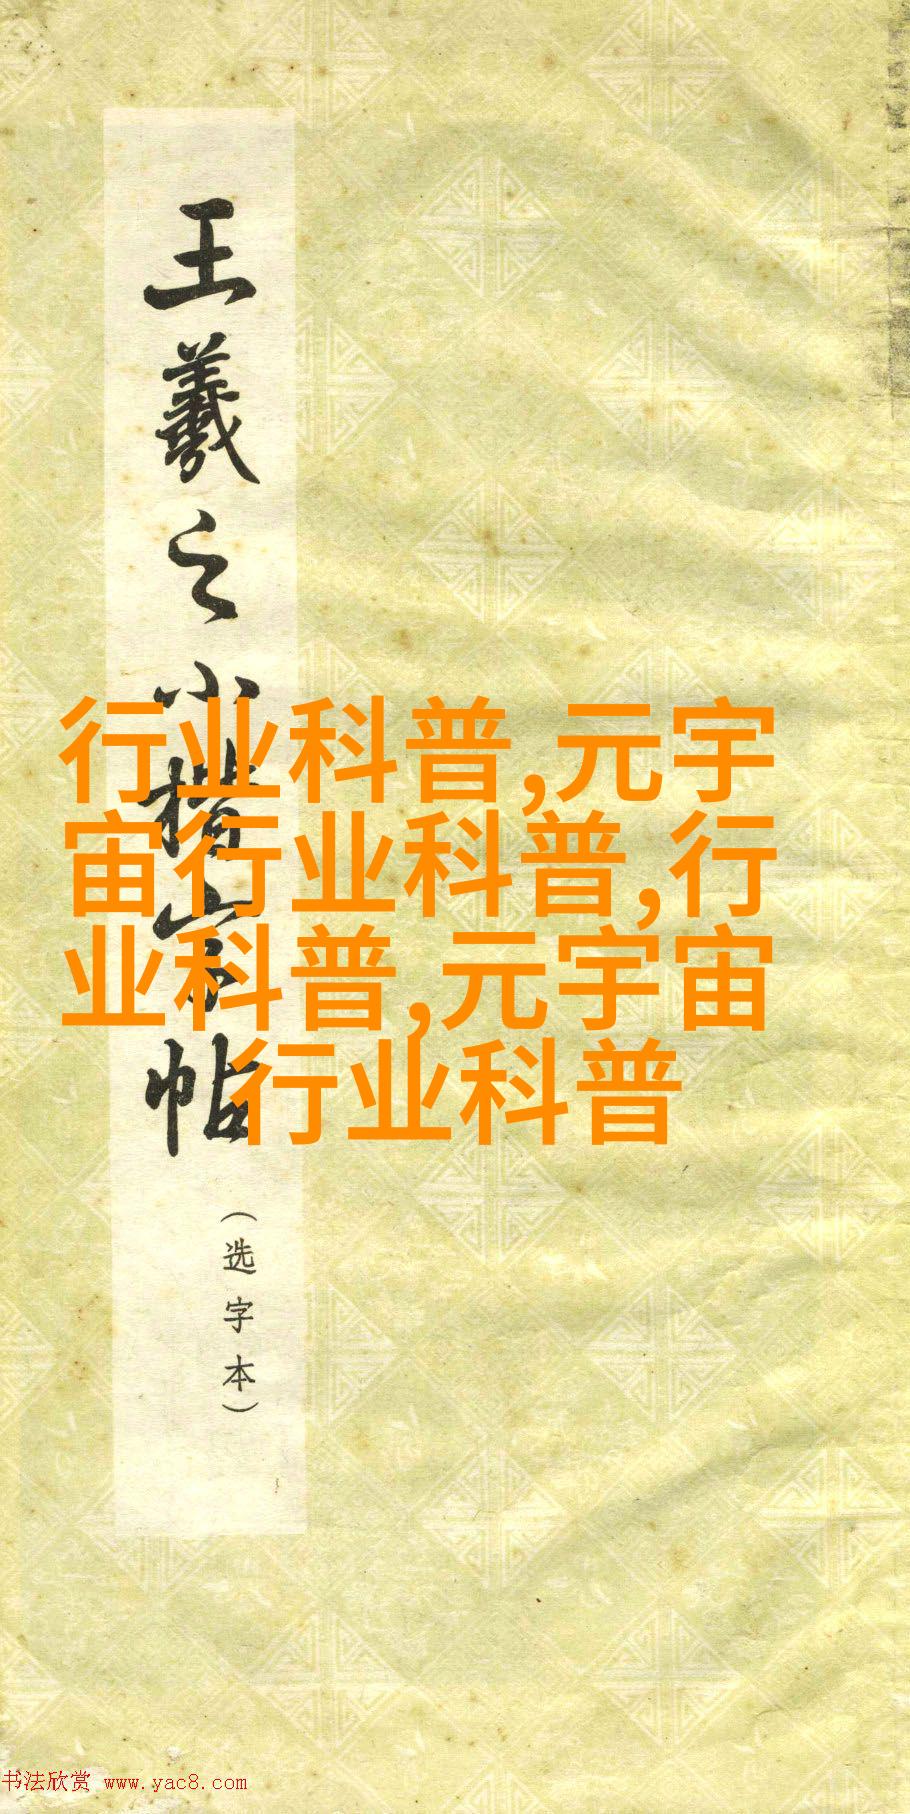 王羲之小楷字帖
(选字本)
行业科普,元宇
宙行业科普,行
业科普,元宇宙
行业科普
书法欣赏 www.yac8.com